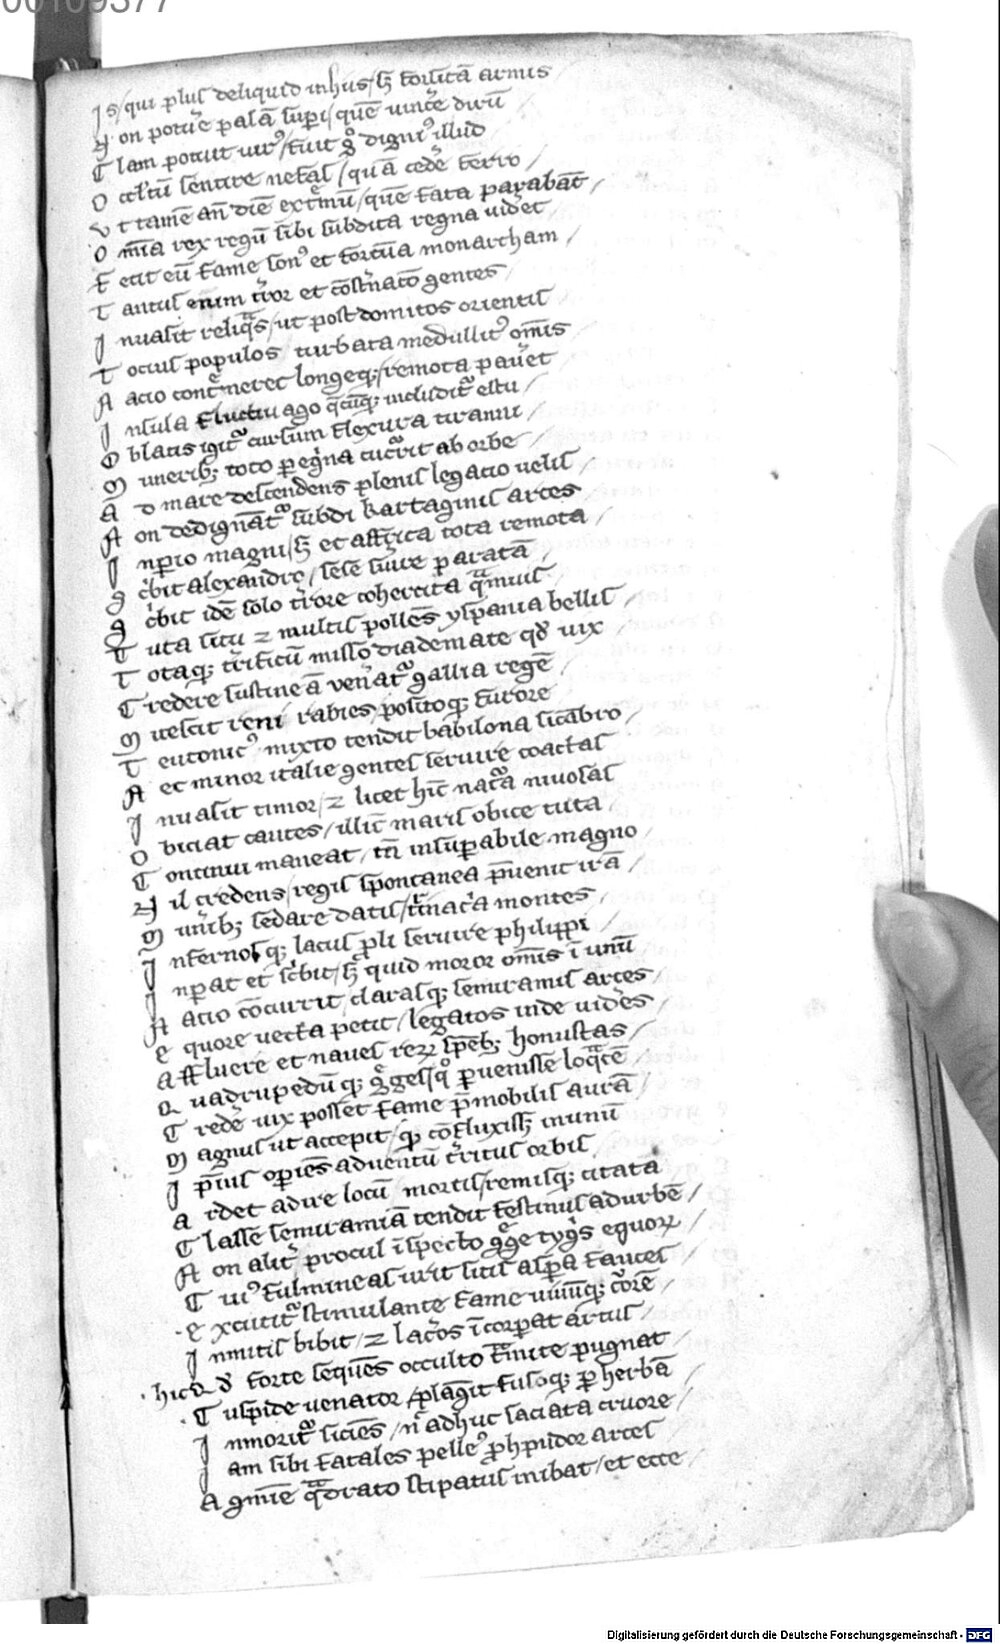 00109377
Is/qui plus deliquid in hus/ſꝫ torſitā armis
Non potuͤe palā ſuꝑi/quē uinc̄e dirū
Clam potuit uir᷒/fuit gͦ dignu᷒ illud
Occl̄tū ſentire nefas/quā ced̄e ferro/
Vt tamē an̄ diē extͤmū/quē fata parabāt/
Omīa rex regū ſibi ſubdita regna uid̄et
Fecit eū fame ſon᷒ et fortūa monarcham/
Tantus enim tͥror et cōſtn̄atͦo gentes
Inuaſit reliqͣs/ut poſt domitos orientis
Tocius populos turbata medullit᷒ om̄is
Nacio contͤmerec longeqꝫ/remota pau̅et
Inſula fluctiuago q̄cūqꝫ includit᷑ eſtu/
Oblatis igit᷑ curſum flexura tiranni
Munerib; toto ꝑegͥna cucͬrit ab orbe
Ad mare deſcendens plenis legacio uelis/
Non dedignāt᷑ ſubdi kartaginis arces
Inperio magni/ſꝫ et affͥica tota remota
Scͥbit alexandro/ſeſe ſīure paratā/
Scͥbit idē ſolo tͥrore cohercita qͣmuis
Tuta ſitu ⁊ multis pollēs yſpania bellis/
Totaqꝫ tͥrificū miſſo diademate qd̄ uix
Credere ſuſtineā ven̄at᷑ gallia regē/
Miteſcit reni rabies/poſitoqꝫ furore
Teutonic᷒ mixto tendit babilona ſicābro/
Nec minor italie gentes ſeruire coactas
Inuaſit timor/⁊ licet hīc natͣa niuoſas
Obiciat cautes/illīc maris obice tuta
Contīui maneat/tn̄ inſuꝑabile magno
Nil credens/regis ſpontanea p̄uenit irā/
Munͥib; ſedare datis/tͥnacͥa montes
Infernoſqꝫ lacus ꝓli ſeruire philippi
Inꝑat et ſcͥbit/ſꝫ quid moror om̄is ī unū
Nacio cōcurrit/claraſqꝫ ſemiramis arces
Equore vecta petit/legatos inde vid̄es
Affluere et naues reꝝ ſpēb; honuſtas
Quadrupedūqꝫ gͤges/qͦ ꝑueniſſe loqͣcē
Cred̄e vix poſſet fame p̄mobilis aurā
Magnus ut accepit/qͦ cōfluxiſſꝫ in unū
Ip̄ius oꝑiēs aduentū tͥritus orbis
Ardet adire locū mortis/remiſqꝫ citata
Claſſe ſemiramiā tendit feſtinus ad urbē/
Non alit᷑ procul īſpecto gͤge tygͥs equoꝝ/
Cui᷒ fulmineas urit ſitis aſꝑa fauces
Excitit᷑ ſtimulante fame uiuūqꝫ cͦorē
Inmitis bibit/⁊ lacͥos īcorꝑat artus
·hic Qd̄ forte ſequēs occulto tͥmite pugnat
Cuſpide venator/plāgit fuſoqꝫ ꝑ herbā
Inmorit᷑ ſiciēs/n̄ adhuc ſaciata cruore/
Iam ſibi fatales pelle᷒ ꝓh pudor arces
Agmīe qͣdrato ſtipatus inibat/et ecce
Digitalisierung gefördert durch die Deutsche Forschungsgemeinschaft - DFG